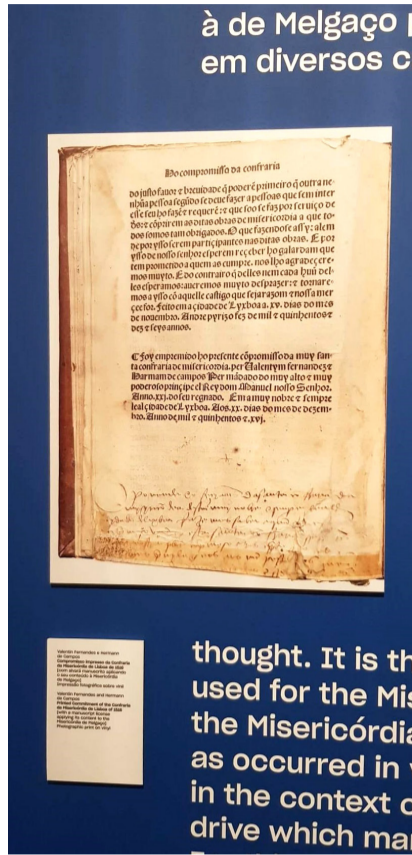 à de Melgaço
em diversos c
Do compromisso da confraria
do justo fauor ⁊ breuidade q̃ poderẽ primeiro q̃ outra ne-
nhũa pessoa segũdo se deue fazer a pessoas que sem inter
esse seu ho fazẽ ⁊ requerẽ: ⁊ que soo se faz por seruiço de
d̃os: ⁊ cõprirem as ditas obras de misericordia a que to-
dos somos tam obrigados. O que fazendose assy: alem
de por ysso serem participantes nas ditas obras. E por
ysso de nosso senhor esperem reçeber ho galardam que
tem prometido a quem as cumpre. nos lho agradeçere-
mos muyto. E do contrairo q̃ delles nem cada huũ del-
les esperamos: aueremos muyto desprazer: ⁊ tornare-
mos a ysso cõ aquelle castigo que sejarazom ⁊ nossa mer
çee for. Feito em a çidade de Lyxboa. a. xv. dias do mes
de nouembro. Andre pyrez o fez de mil ⁊ quinhentos ⁊
dez ⁊ seys annos.
¶ Foy empremido ho presente cõpromisso da muy san-
ta confraria de misericordia. per Ualentym fernandez ⁊
Harmam de campos Per mãdado do muy alto ⁊ muy
poderoso principe el Rey dom Manuel nosso Senhor.
Anno.xxj. do seu regnado. Em a muy nobre ⁊ sempre
leal çidade de Lyxboa. Aos.xx. dias do mes de dezem-
bro. Anno de mil ⁊ quinhentos ⁊.xvj.
Valentim Fernandes e Hermann
de Campos
Compromisso impresso da Confraria
da Misericórdia de Lisboa de 1516
[com alvará manuscrito aplicando
o seu conteúdo à Misericórdia
de Melgaço]
Impressão fotográfica sobre vinil
Valentim Fernandes and Hermann
de Campos
Printed Commitment of the Confraria
da Misericórdia de Lisboa of 1516
[with a manuscript license
applying its content to the
Misericórdia de Melgaço]
Photographic print on vinyl
thought. It is th
used for the Mis
the Misericórdia
as occurred in
in the context o
drive which ma